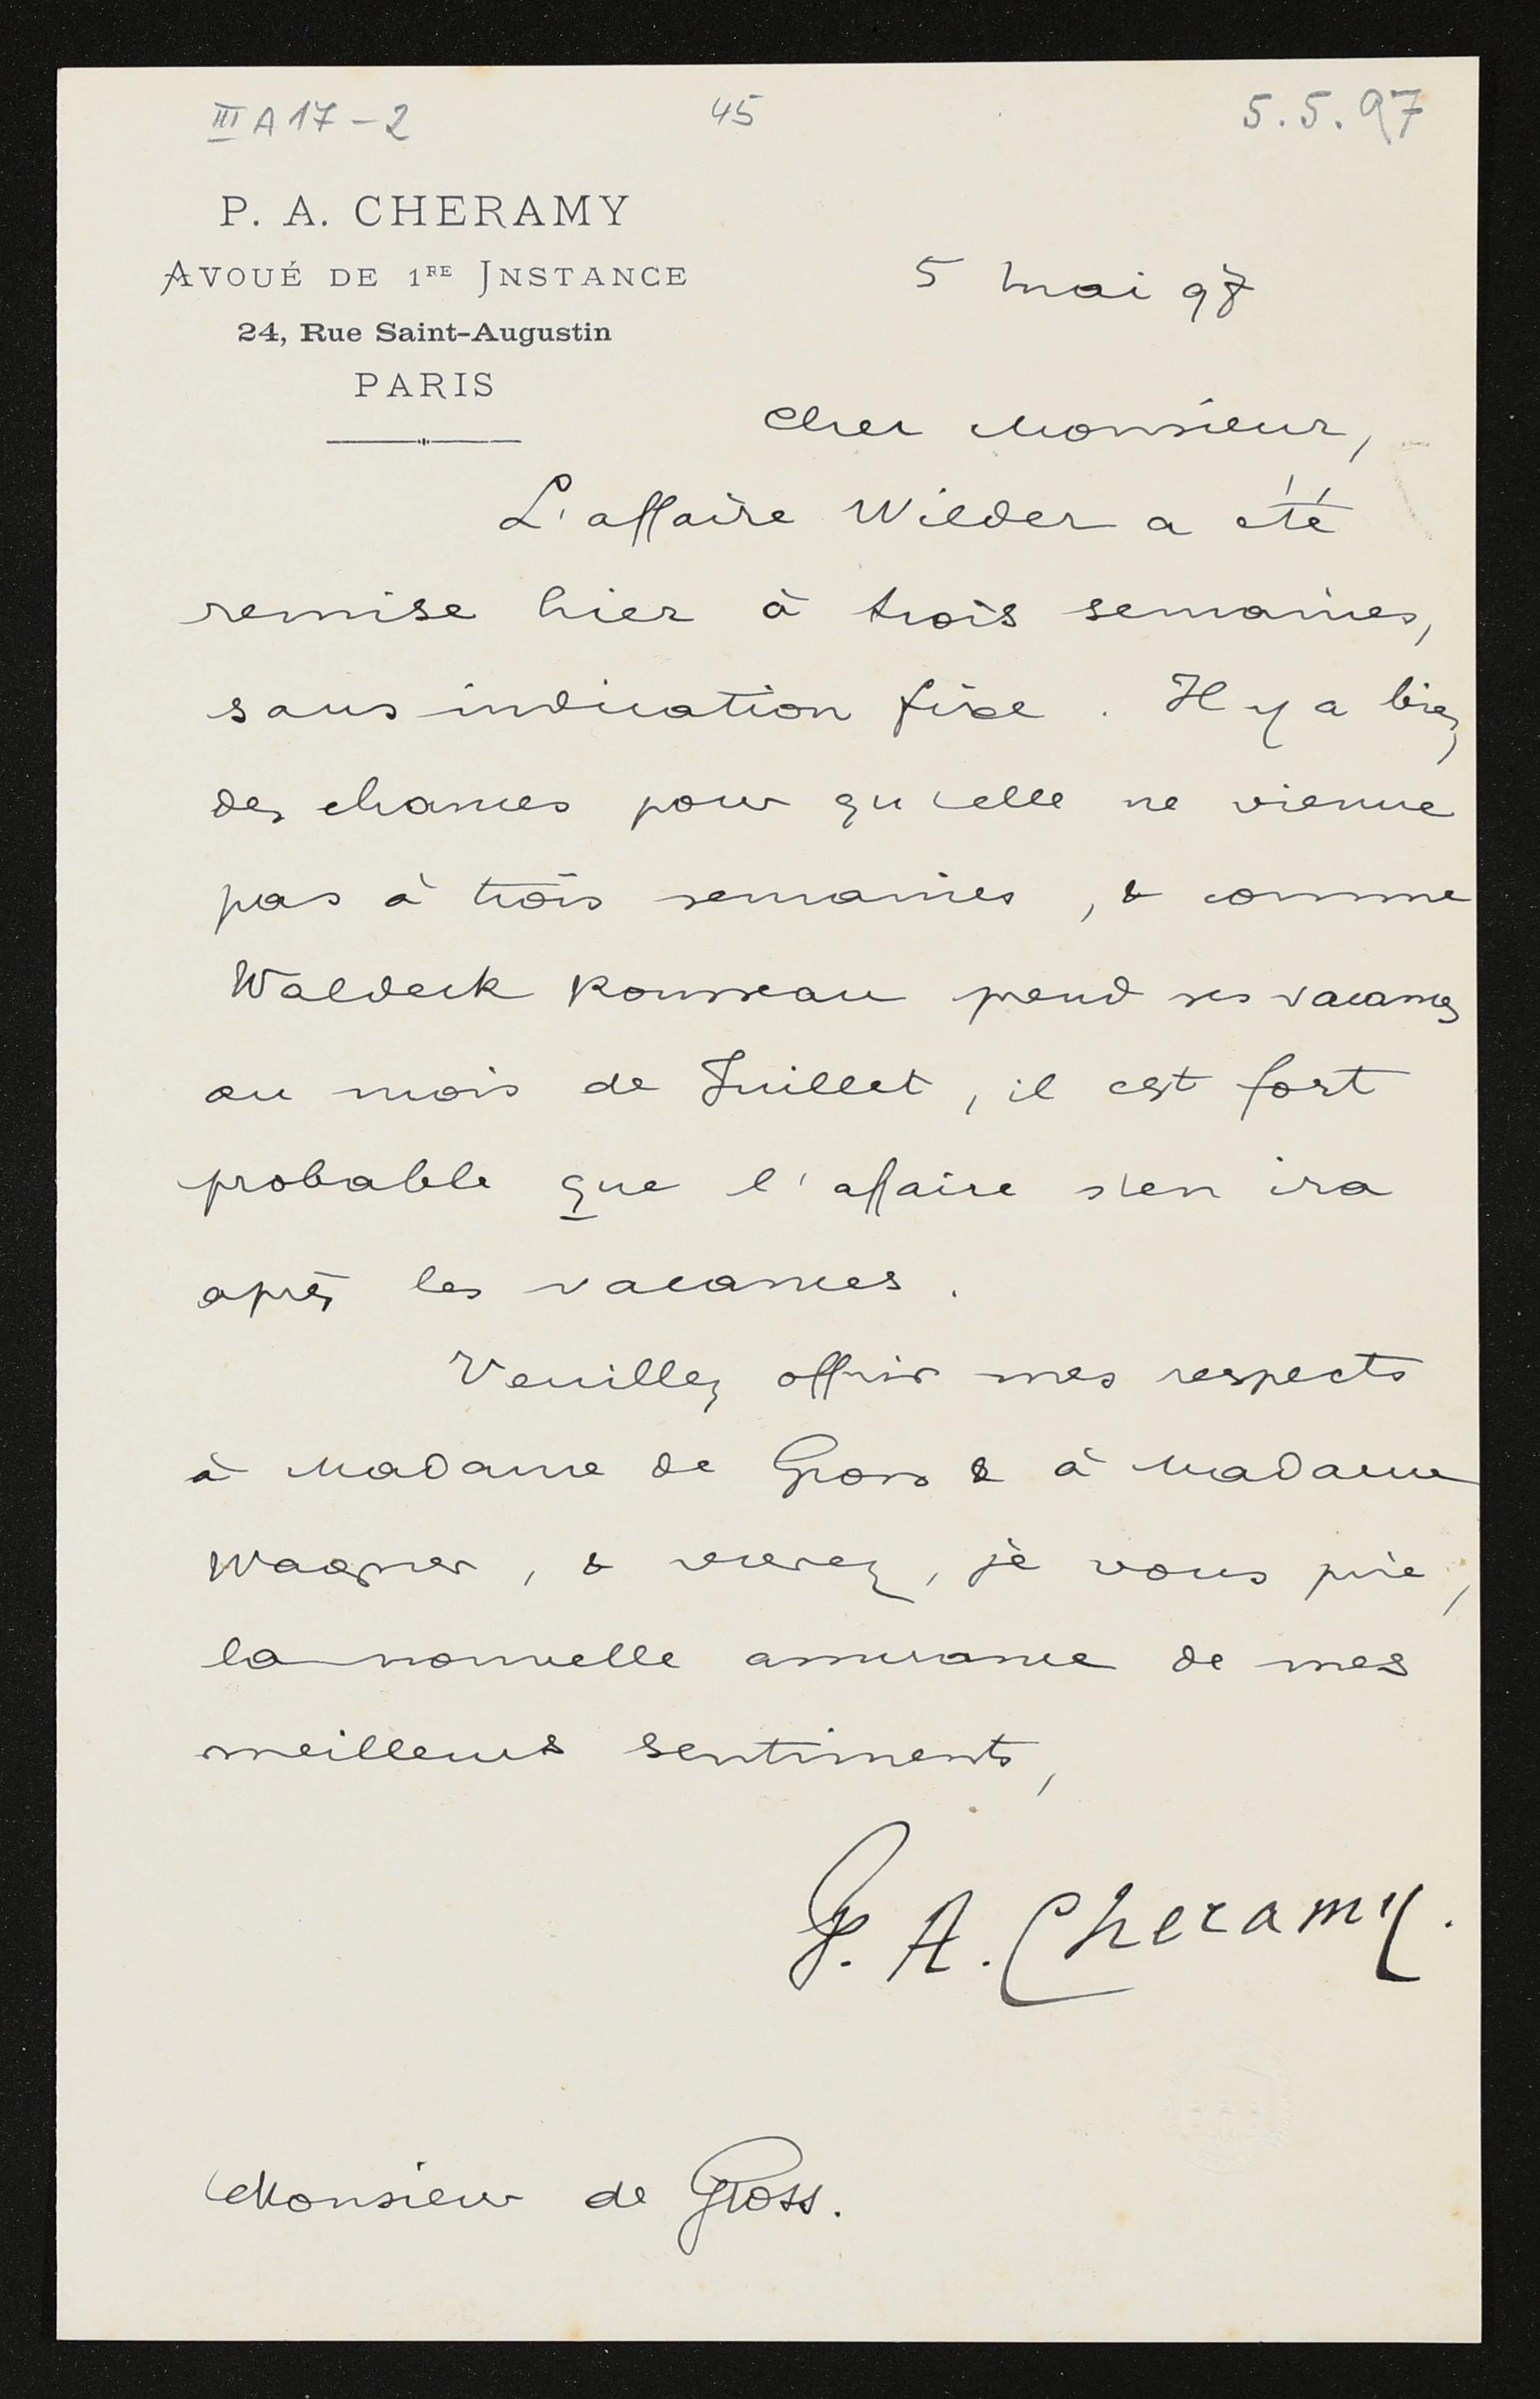 III A 17 - 2 45 5.5.97
P. A. CHERAMY
AVOUÉ DE 1RE INSTANCE
24, Rue Saint-Augustin
PARIS
5 mai 97
Cher Monsieur,
L'affaire Wilder a été
remise hier à trois semaines,
sans indication fixe. Il y a bien
des chances pour qu'elle ne vienne
pas à trois semaines, & comme
Waldeck Rousseau prend ses vacances
au mois de Juillet, il est fort
probable que l'affaire s'en ira
après les vacances.
Veuillez offrir mes respects
à Madame de Gross & à Madame
Wagner, & recevez, je vous prie,
la nouvelle assurance de mes
meilleurs sentiments,
P. A. Cheramy.
Monsieur de Gross.